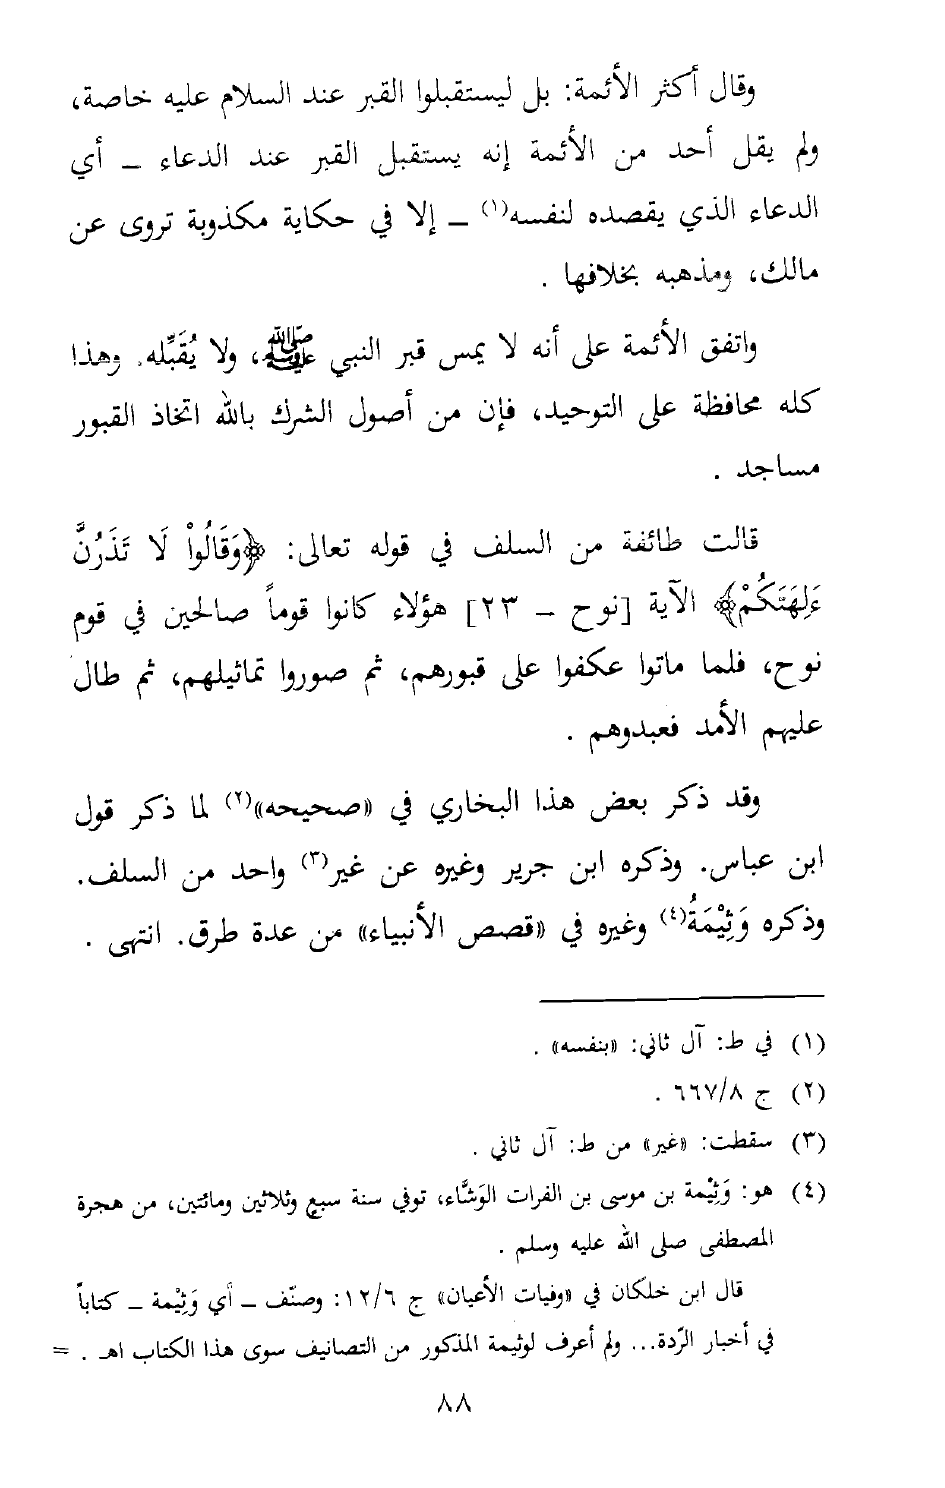 وقال أكثر الأئمة: بل ليستقبلوا القبر عند السلام عليه خاصة،
ولم يقل أحد من الأئمة إنه يستقبل القبر عند الدعاء ــ أي
الدعاء الذي يقصده لنفسه(١) ــ إلا في حكاية مكذوبة تروى عن
مالك، ومذهبه بخلافها .
واتفق الأئمة على أنه لا يمس قبر النبي ﷺ، ولا يُقَبِّله. وهذا
كله محافظة على التوحيد، فإن من أصول الشرك بالله اتخاذ القبور
مساجد .
قالت طائفة من السلف في قوله تعالى: ﴿وَقَالُواْ لَا تَذَرُنَّ
ءَلِهَتَكُمْ﴾ الآية [نوح ــ ٢٣] هؤلاء كانوا قوماً صالحين في قوم
نوح، فلما ماتوا عكفوا على قبورهم، ثم صوروا تماثيلهم، ثم طال
عليهم الأمد فعبدوهم .
وقد ذكر بعض هذا البخاري في «صحيحه»(٢) لما ذكر قول
ابن عباس. وذكره ابن جرير وغيره عن غير(٣) واحد من السلف.
وذكره وَثِيْمَةُ(٤) وغيره في «قصص الأنبياء» من عدة طرق. انتهى .
(١) في ط: آل ثاني: «بنفسه» .
(٢) ج ٦٦٧/٨ .
(٣) سقطت: «غير» من ط: آل ثاني .
(٤) هو: وَثِيْمة بن موسى بن الفرات الوَشَّاء، توفي سنة سبع وثلاثين ومائتين، من هجرة
المصطفى صلى الله عليه وسلم .
قال ابن خلكان في «وفيات الأعيان» ج ١٢/٦: وصنّف ــ أي وَثِيْمة ــ كتاباً
في أخبار الرّدة... ولم أعرف لوثيمة المذكور من التصانيف سوى هذا الكتاب اهـ . =
٨٨